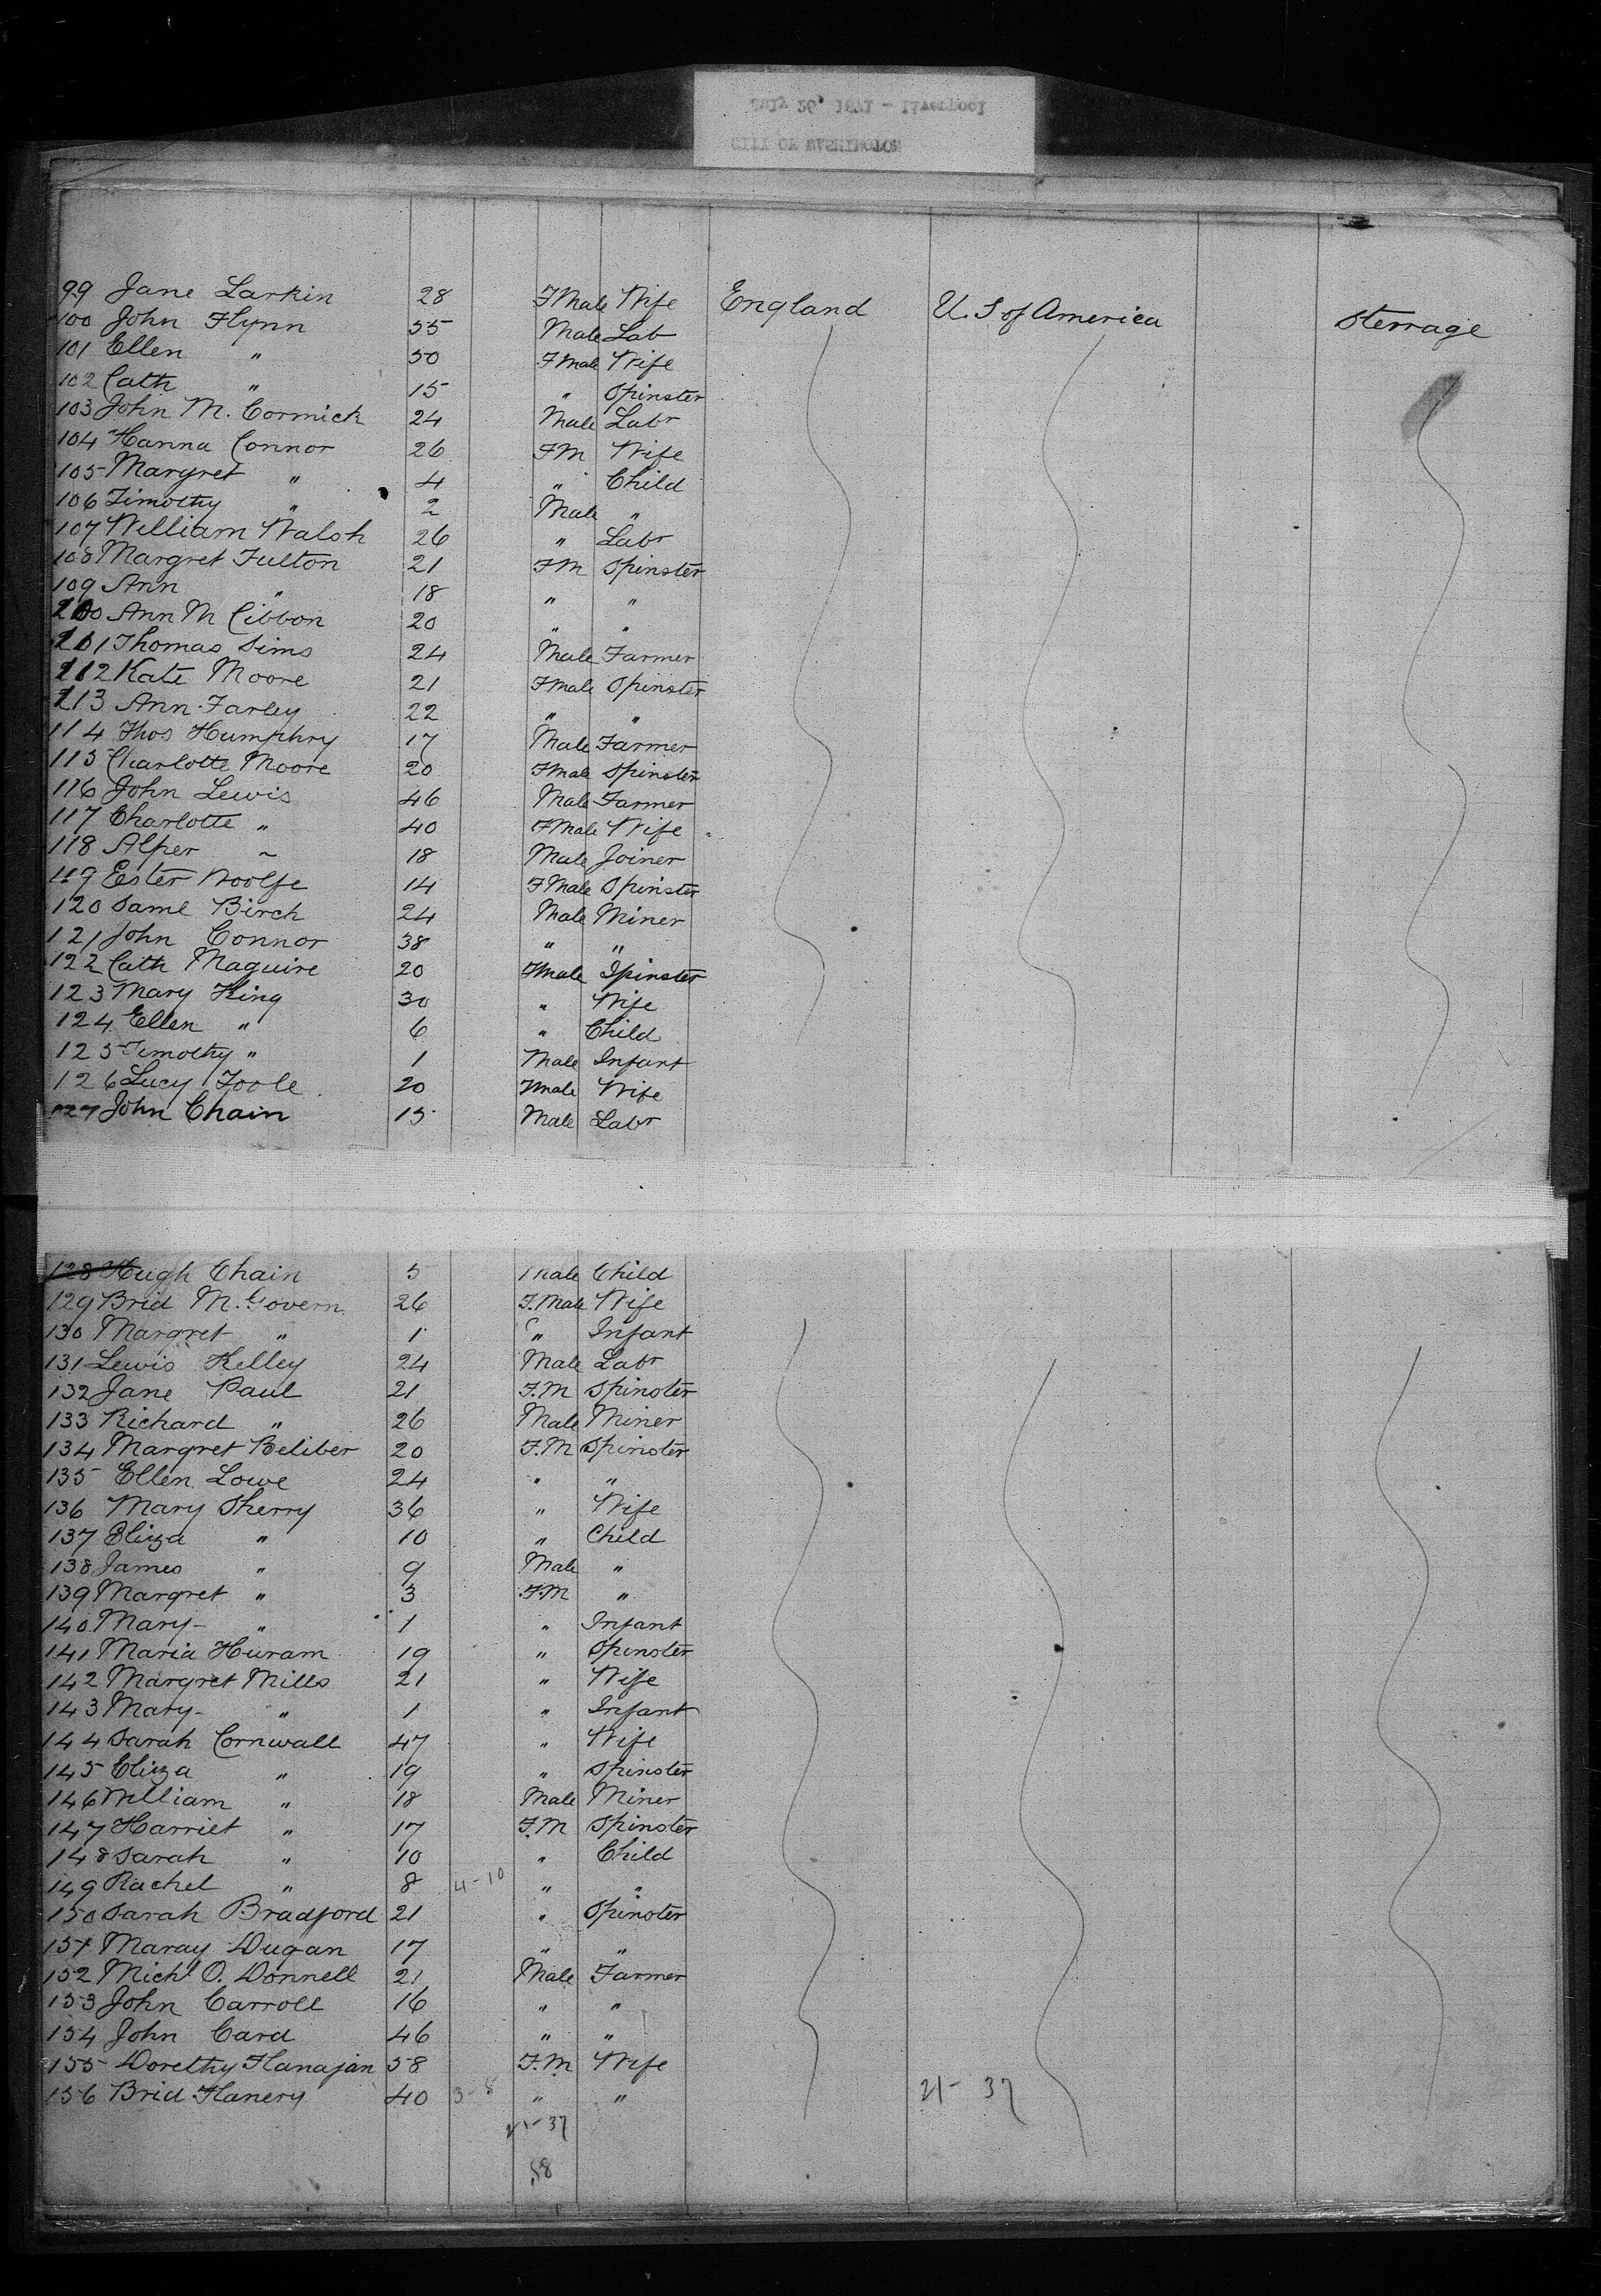 July 26, 1871 - Liverpool
CITY OF WASHINGTON
99 Jane Larkin 28 FMale Wife England U. S of America Sterrage
100 John Flynn 55 Male Lab
101 Ellen " 50 FMale Wife
102 Cath " 15 " Spinster
103 John M. Cormick 24 Male Labr
104 Hanna Connor 26 FM Wife
105 Margret " 4 " Child
106 Timothy " 2 Male "
107 William Walsh 26 " Labr
108 Margret Fulton 21 FM Spinster
109 Ann " 18 " "
Ann M Cibbon 20 " "
Thomas Sims 24 Male Farmer
112 Kate Moore 21 Fmale Spinster
113 Ann Farley 22 " "
114 Thos Humphry 17 Male Farmer
115 Charlotte Moore 20 Fmale Spinster
116 John Lewis 46 Male Farmer
117 Charlotte " 40 FMale Wife
118 Alper " 18 Male Joiner
119 Ester Woolfe 14 FMale Spinster
120 Saml Birch 24 Male Miner
121 John Connor 38 " "
122 Cath Maguire 20 Fmale Spinster
123 Mary King 30 " Wife
124 Ellen " 6 " Child
125 Timothy " 1 Male Infant
126 Lucy Toole 20 Fmale Wife
127 John Chain 15 Male Labr
128 Hugh Chain 5 Male Child
129 Brid M. Govern 26 F.Male Wife
130 Margret " 1 " Infant
131 Lewis Kelley 24 Male Labr
132 Jane Paul 21 F.M Spinster
133 Richard " 26 Male Miner
134 Margret Beliber 20 F.M Spinster
135 Ellen Lowe 24 " "
136 Mary Sherry 36 " Wife
137 Eliza " 10 " Child
138 James " 9 Male "
139 Margret " 3 F.M "
140 Mary " 1 " Infant
141 Maria Huram 19 " Spinster
142 Margret Mills 21 " Wife
143 Mary " 1 " Infant
144 Sarah Cornwall 47 " Wife
145 Eliza " 19 " Spinster
146 William " 18 Male Miner
147 Harriet " 17 F.M Spinster
148 Sarah " 10 " Child
149 Rachel " 8 4-10 " "
150 Sarah Bradford 21 " Spinster
151 Maray Dugan 17 " "
152 Michl O. Donnell 21 Male Farmer
153 John Carroll 16 " "
154 John Card 46 " "
155 Dorethy Flanajan 58 F.M. Wife
156 Brid Flanery 40 3-8 " " 21-37
21-37
58